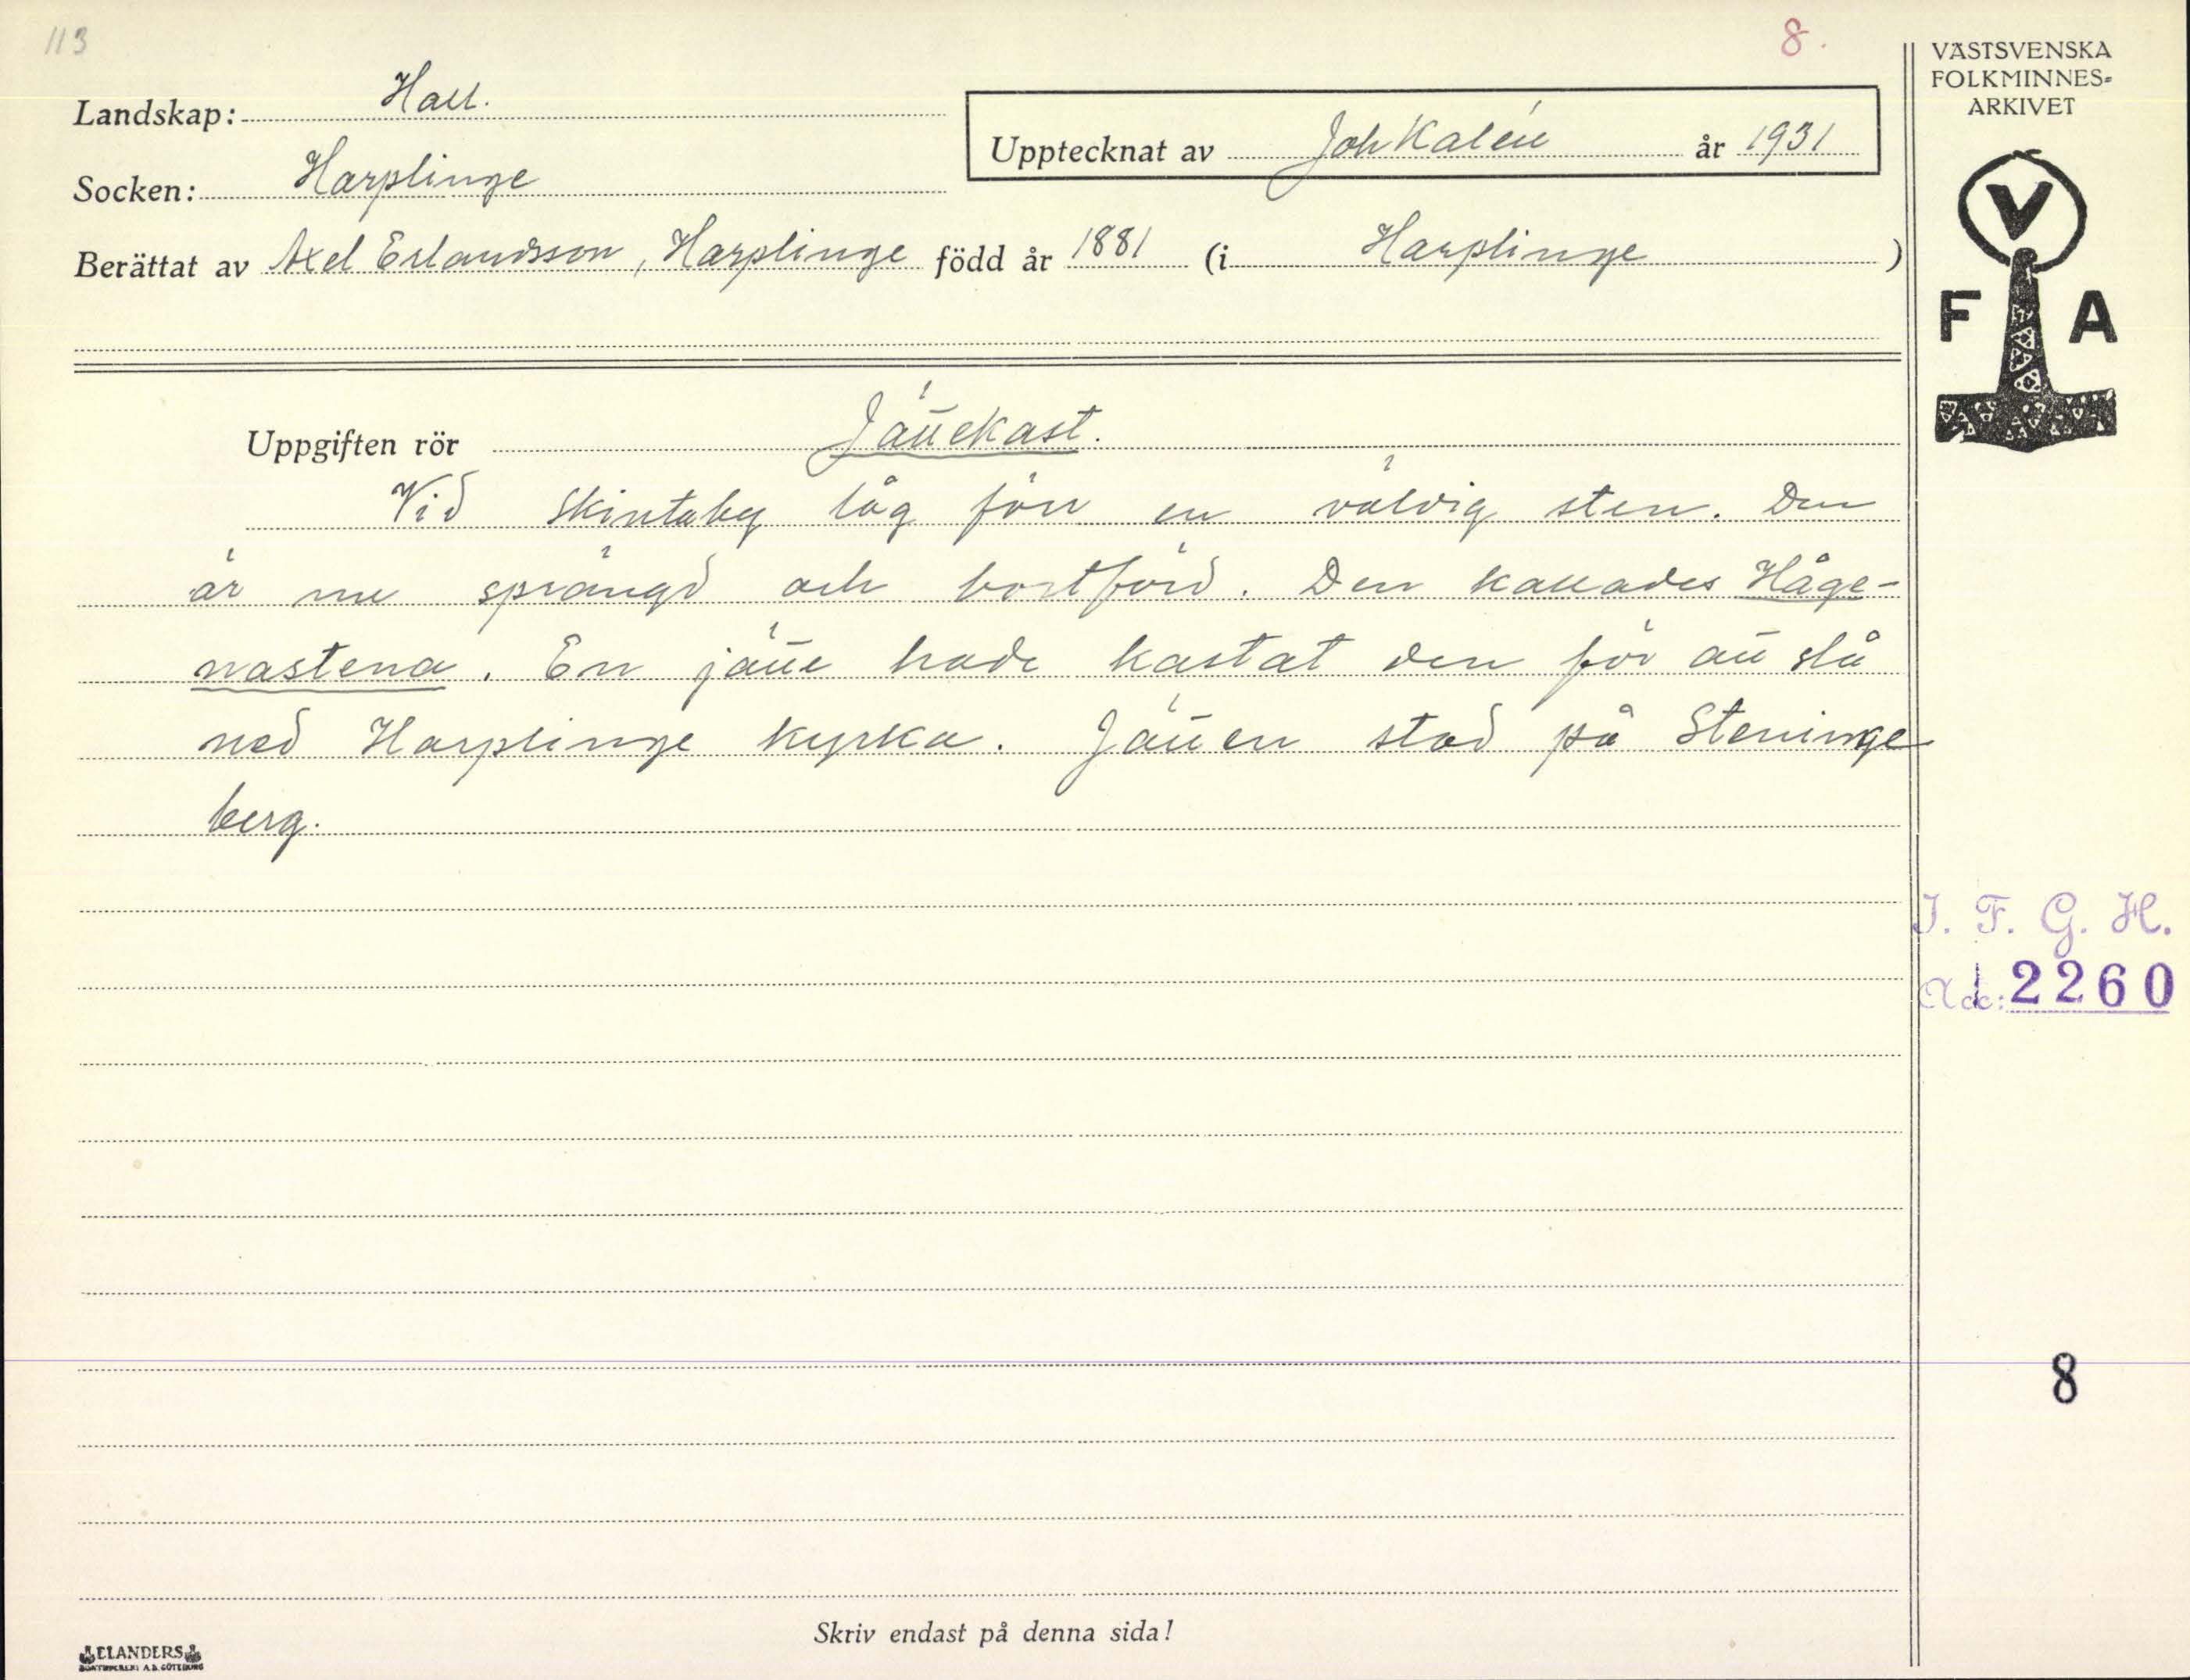 113
8.
VÄSTSVENSKA
FOLKMINNES=
ARKIVET
Landskap: Hall.
Upptecknat av Joh Kalén år 1931
Socken: Harplinge
Berättat av Axel Erlandsson, Harplinge född år 1881 (i Harplinge)
V
F A
Uppgiften rör Jättekast.
Vid Skintaby låg förr en väldig sten. Den
är nu sprängd och bortförd. Den kallades Håge-
nastena. En jätte hade kastat den för att slå
ned Harplinge kyrka. Jätten stod på Steninge
berg.
I. F. G. H.
Acc: 2260
8
Skriv endast på denna sida!
ELANDERS
BOKTRYCKERI A.B. GÖTEBORG